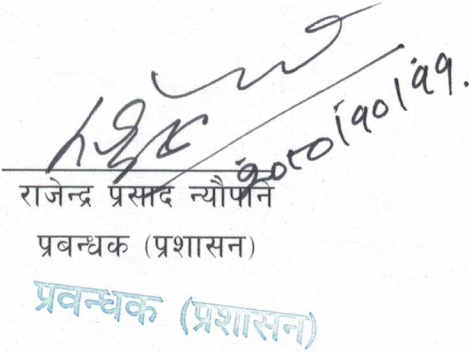 २०८०।१०।११.
राजेन्द्र प्रसाद न्यौपाने
प्रबन्धक (प्रशासन)
प्रवन्धक (प्रशासन)